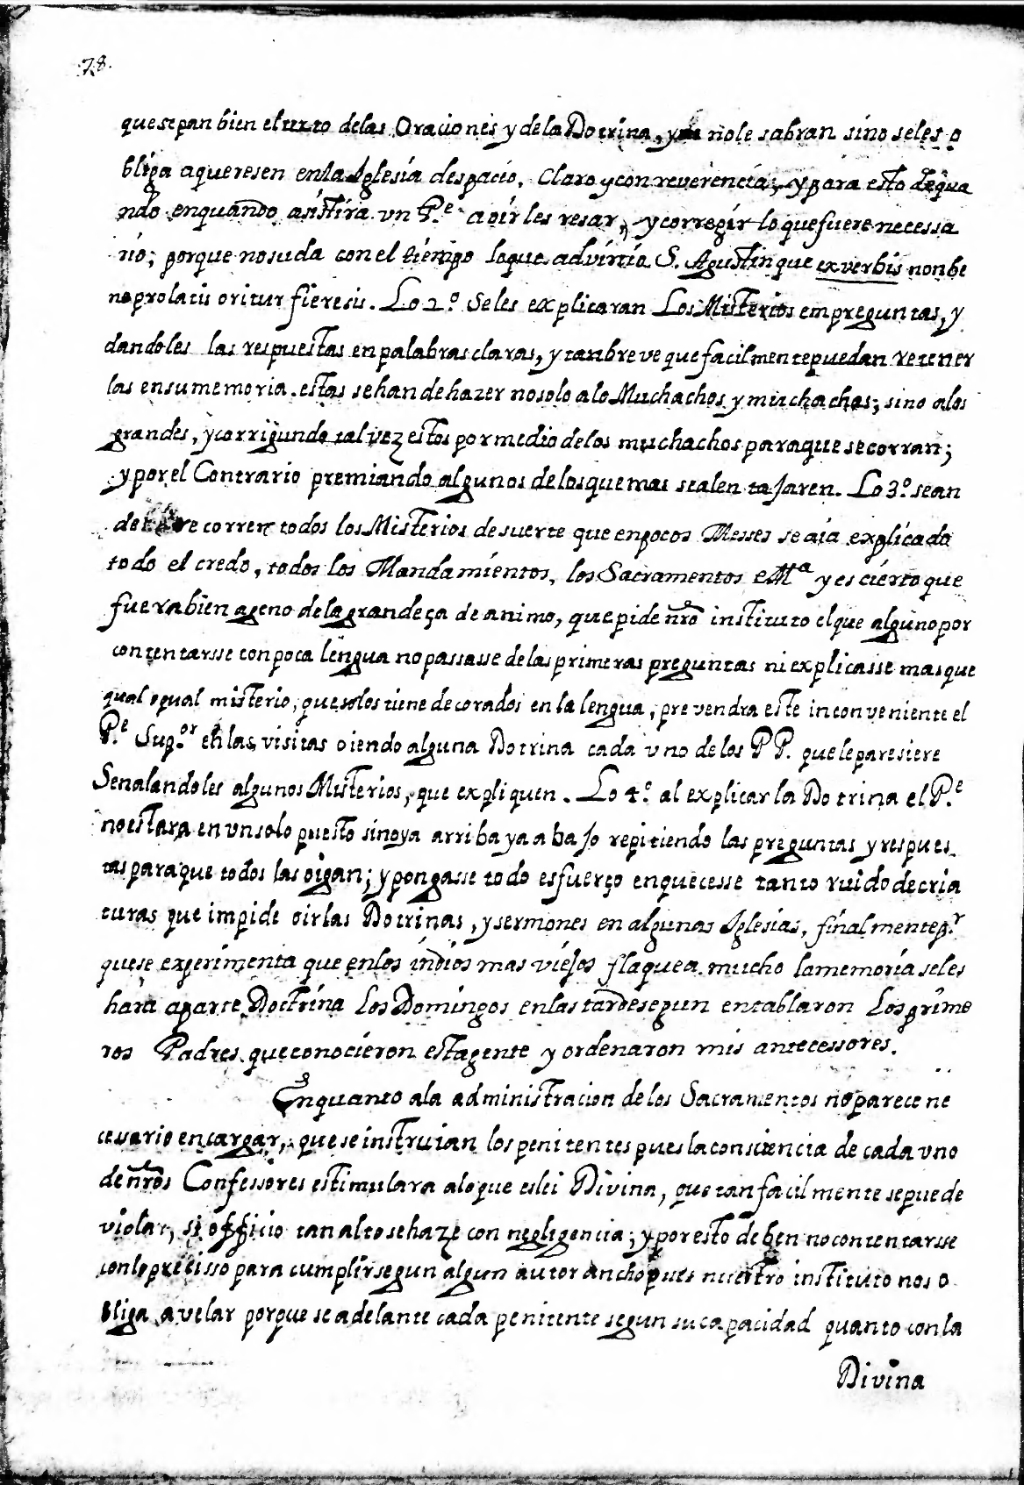 78.
que sepan bien el texto de las Oraciones y de la Dotrina, y no le sabran sino se les o
bliga a que resen en la Iglesia despacio, Claro y con reverencia; y para esto de qua
ndo en quando asistira vn P.e a oir les resar, y corregir lo que fuere necessa
rio; porque no suceda con el tiempo lo que advirtio S. Agustin que ex verbis non be
ne prolatis oritur fieresis. Lo 2.o Se les explicaran Los Misterios em preguntas, y
dandoles las respuestas en palabras claras, y tan breve que facilmente puedan retener
las en su memoria. estas se han de hazer no solo a lo Muchachos y muchachas; sino a los
grandes, y corrigiendo tal vez estos por medio de los muchachos para que se corran;
y por el Contrario premiando algunos de los que mas sealentajaren. Lo 3.o sean
de correr todos los Misterios de suerte que en pocos Messes se aia explicado
todo el credo, todos los Mandamientos, los Sacramentos e M.a y es cierto que
fuera bien ageno de la grandeça de animo, que pide nro instituto el que alguno por
contentarsse con poca lengua no passasse de las primeras preguntas ni explicasse mas que
qual o qual misterio, que solos tiene decorados en la lengua; prevendra este inconveniente el
P.e Sup.or en las visitas oiendo alguna Dotrina cada vno de los PP. que le paresiere
Senalandoles algunos Misterios, que expliquen. Lo 4.o al explicar la Dotrina el P.e
no estara en vn solo puesto sino ya arriba ya abajo repitiendo las preguntas y respues
tas para que todos las oigan; y pongasse todo esfuerço en que cesse tanto ruido de cria
turas que impide oir las Dotrinas, y sermones en algunas Iglesias, finalmente p.r
que se experimenta que en los indios mas viejos flaquea mucho la memoria se les
hara aparte Doctrina Los Domingos en las tardes segun entablaron Los prime
ros Padres que conocieron esta gente y ordenaron mis antecessores.
En quanto a la administracion de los Sacramentos no parece ne
cesario encargar, que se instruian los penitentes pues la consciencia de cada vno
de nros Confessores estimulara a lo que es lei Divina, que tan facilmente se puede
violar, si officio tan alto se haze con negligencia; y por esto deben no contentarsse
con lo precisso para cumplir segun algun autor ancho pues nuestro instituto nos o
bliga a velar porque se adelante cada penitente segun su capacidad quanto con la
Divina